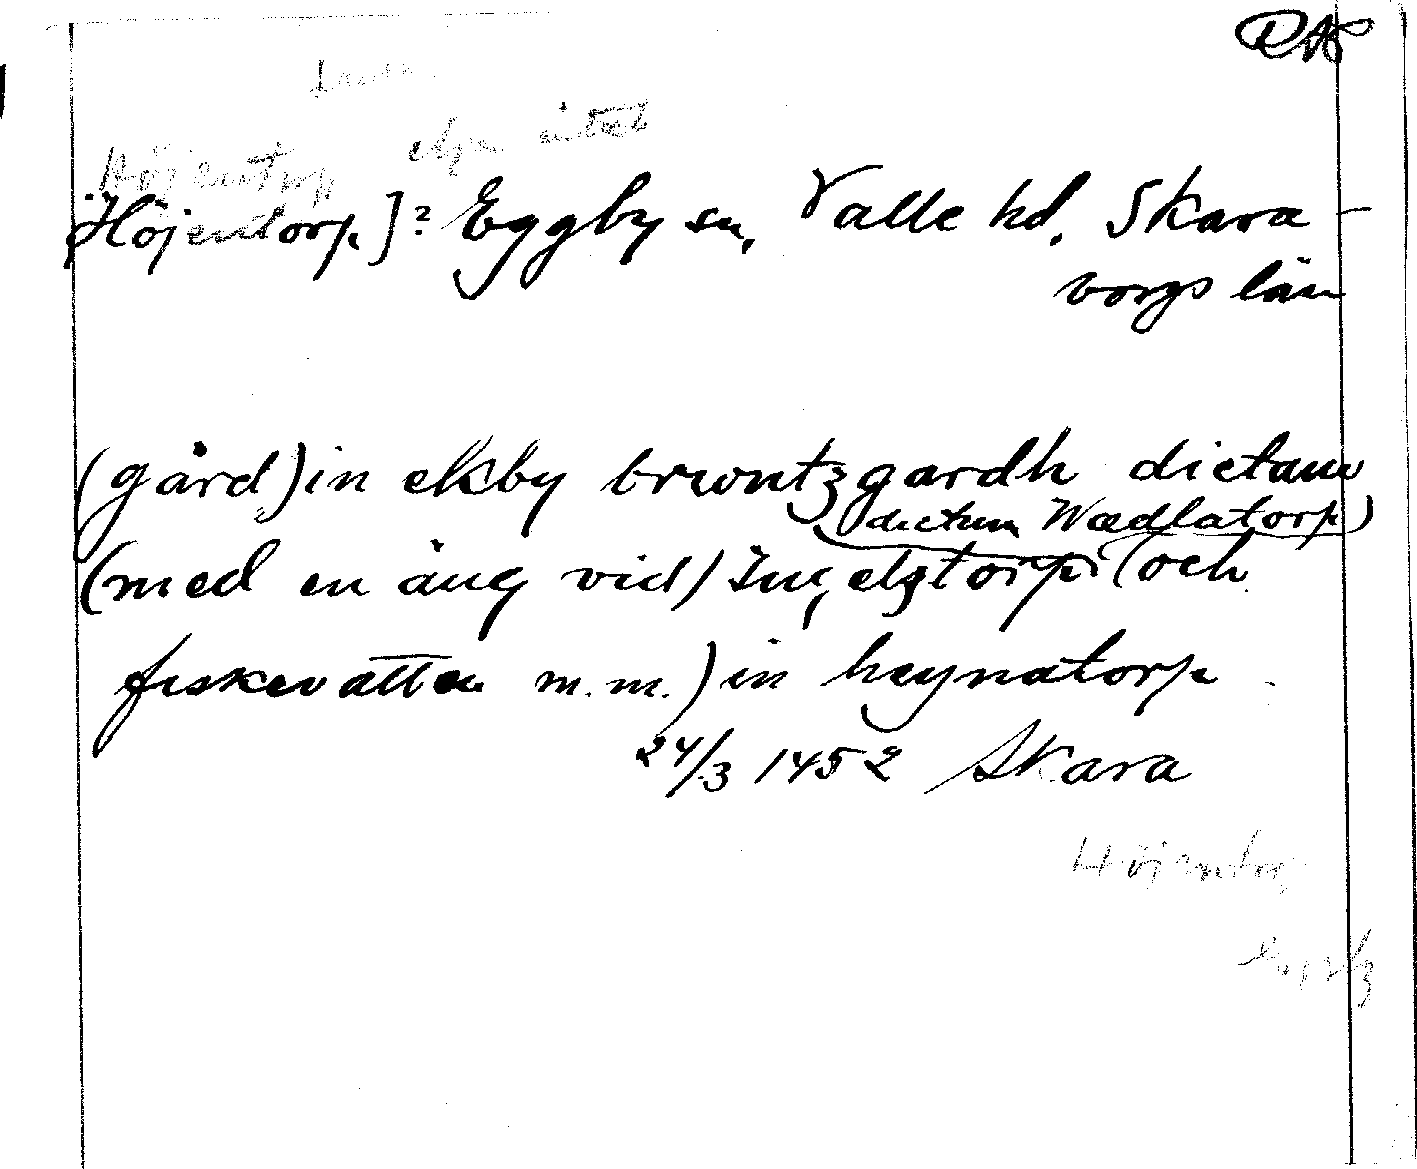 RAP
Höjentorp
[Höjentorp]? Eggby sn, Valle hd. Skara-
borgs län
(gård) in ekby brwntzgardh dictam
dictum Wædlatorp)
(med en äng vid) Ingelztorp (och
fiskevatten m.m.) in heynatorp
24/3 1452 Skara
Höjentorp